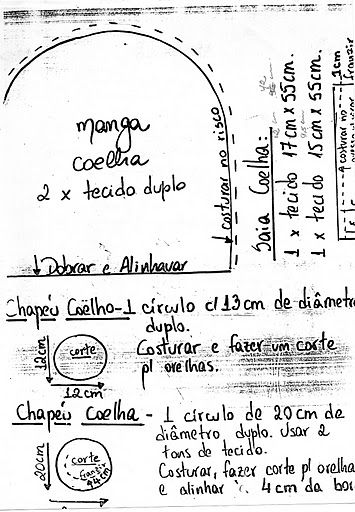 manga
coelha
2 x tecido duplo
costurar no risco
Dobrar e Alinhavar
Saia Coelha:
1 x tecido 17cm x 55cm.
1 x tecido 15cm x 55cm.
1cm
franzir
costurar no
Chapéu Coëlho - 1 círculo c/ 13cm de diâmetro
duplo.
Costurar e fazer um corte
p/ orelhas.
12cm
corte
12cm
Chapéu Coelha - 1 círculo de 20cm de
diâmetro duplo. Usar 2
tons de tecido.
Costurar, fazer corte p/ orelha
e alinhar 4cm da bor
20cm
corte
franzir
44cm